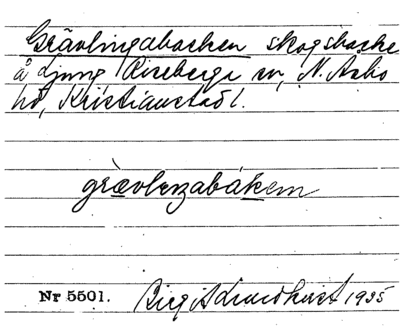 Grävlingabacken skogsbacke
å Ljung Riseberga sn, N. Åsbo
hd, Kristianstad l.
grævleŋabákem
Nr 5501. Birgit Lundkvist 1935